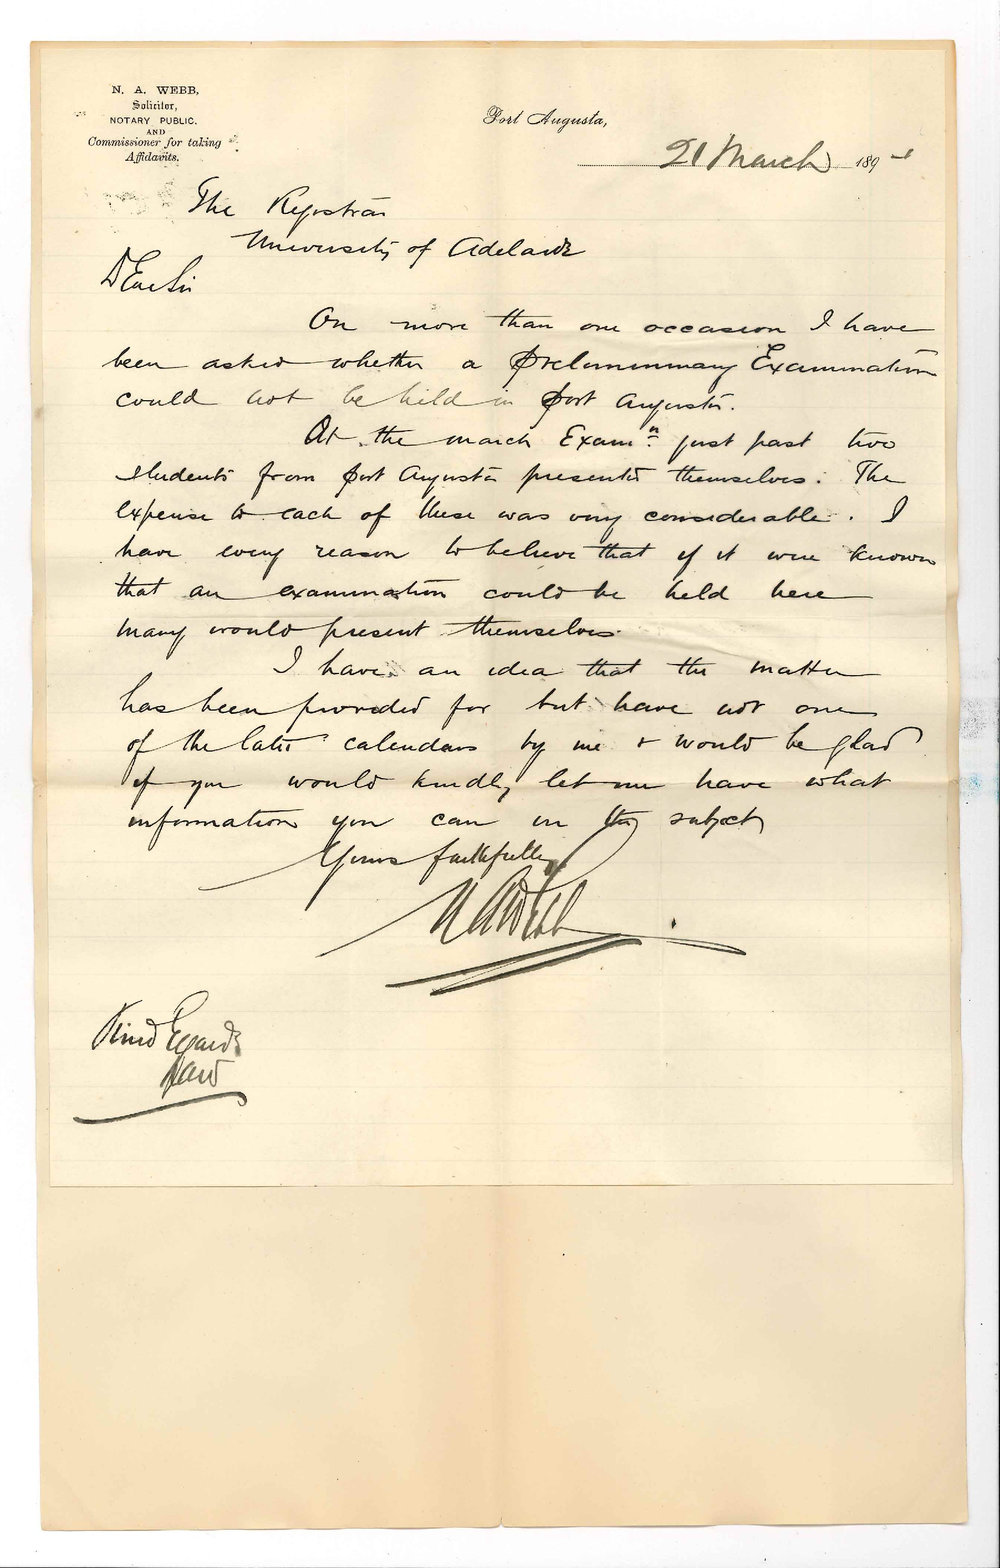 N. A. WEBB,
Solicitor,
NOTARY PUBLIC.
AND
Commissioner for taking
Affidavits.
Port Augusta,
21 March 189
The Registrar
University of Adelaide
Dear Sir
On more than one occasion I have
been asked whether a Preliminary Examination
could not be held in Port Augusta.
At the March Examn. just past two
students from Port Augusta presented themselves. The
expense to each of these was very considerable. I
have every reason to believe that if it were known
that an examination could be held here
many would present themselves.
I have an idea that the matter
has been provided for but have not one
of the late calendars by me & would be glad
if you would kindly let me have what
information you can on the subject
Yours faithfully
N A Webb
Kind Regards
NAW